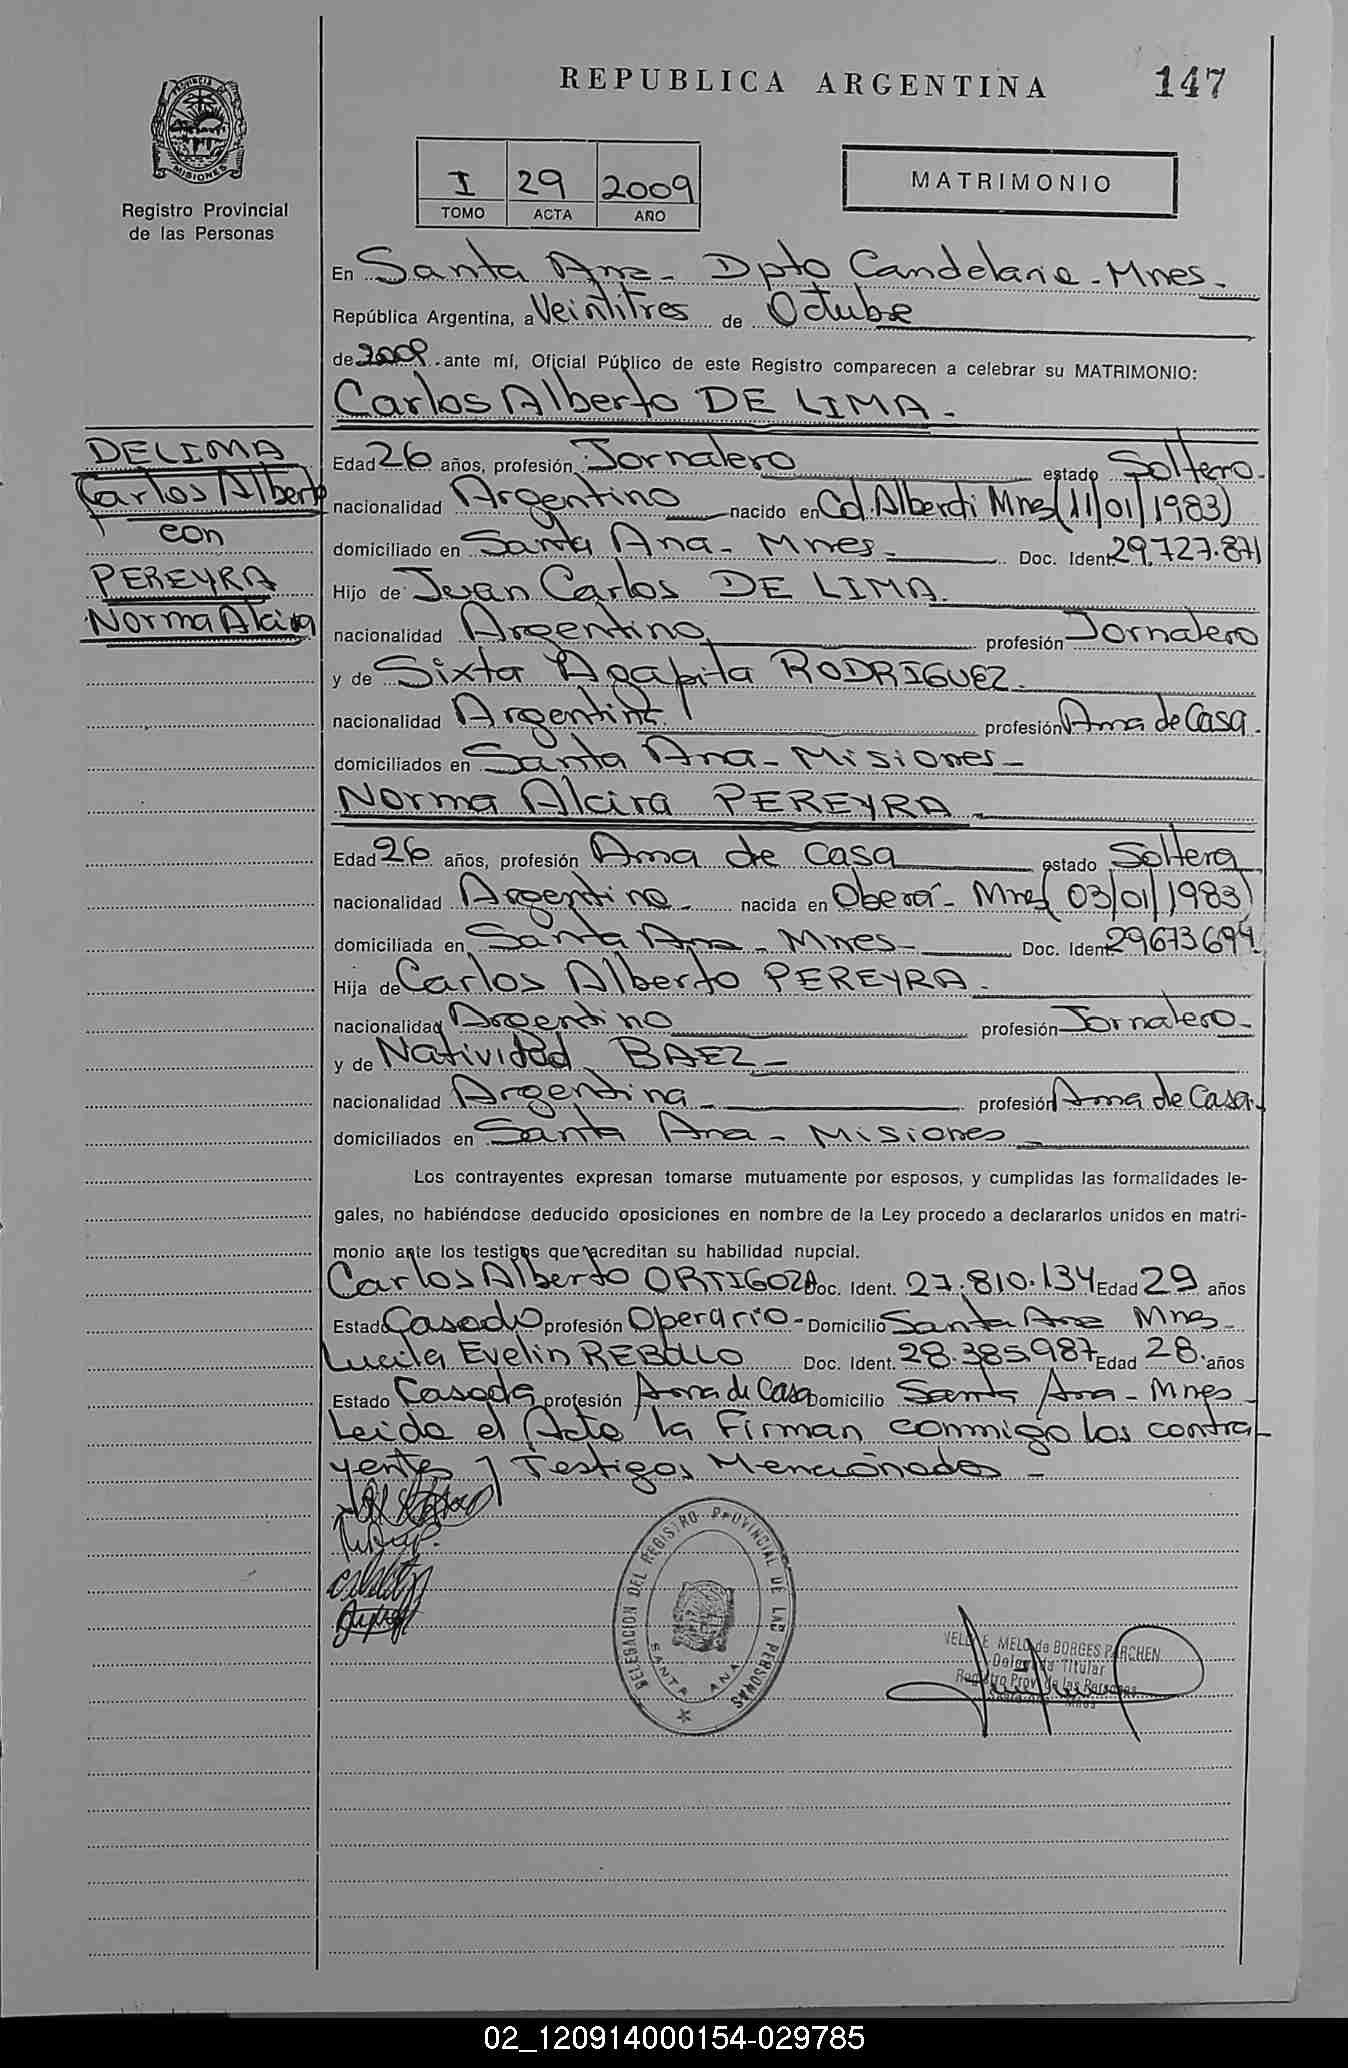 REPUBLICA ARGENTINA 147
PROVINCIA DE
MISIONES
Registro Provincial
de las Personas
I 29 2009
TOMO ACTA AÑO
MATRIMONIO
En Santa Ana - Dpto Candelaria - Mnes -
República Argentina, a Veintitres de Octubre
de 2009 ante mí, Oficial Público de este Registro comparecen a celebrar su MATRIMONIO:
Carlos Alberto DE LIMA -
DELIMA
Carlos Alberto
con
PEREYRA
Norma Alcira
Edad 26 años, profesión Jornalero estado Soltero -
nacionalidad Argentino nacido en Cd. Alberdi Mnes (11/01/1983)
domiciliado en Santa Ana - Mnes - Doc. Ident. 29.727.871
Hijo de Juan Carlos DE LIMA.
nacionalidad Argentino profesión Jornalero
y de Sixta Agapita RODRIGUEZ -
nacionalidad Argentina profesión Ama de Casa.
domiciliados en Santa Ana - Misiones -
Norma Alcira PEREYRA -
Edad 26 años, profesión Ama de casa estado Soltera
nacionalidad Argentina - nacida en Oberá - Mnes (03/01/1983)
domiciliada en Santa Ana - Mnes - Doc. Ident. 29673694.
Hija de Carlos Alberto PEREYRA -
nacionalidad Argentino profesión Jornalero -
y de Natividad BAEZ -
nacionalidad Argentina - profesión Ama de Casa.
domiciliados en Santa Ana - Misiones -
Los contrayentes expresan tomarse mutuamente por esposos, y cumplidas las formalidades le-
gales, no habiéndose deducido oposiciones en nombre de la Ley procedo a declararlos unidos en matri-
monio ante los testigos que acreditan su habilidad nupcial.
Carlos Alberto ORTIGOZA Doc. Ident. 27.810.134 Edad 29 años
Estado Casado profesión Operario - Domicilio Santa Ana Mnes -
Lucila Evelin REBOLLO Doc. Ident. 28.385987 Edad 28. años
Estado Casada profesión Ama de Casa Domicilio Santa Ana - Mnes -
Leida el Acta la Firman conmigo los contra-
yentes y Testigos Mencionados -
DELEGACION DEL REGISTRO PROVINCIAL DE LAS PERSONAS
SANTA ANA
MELO de BORGES PARCHEN
Delegada Titular
Registro Prov. de las Personas
Mnes
02_120914000154-029785